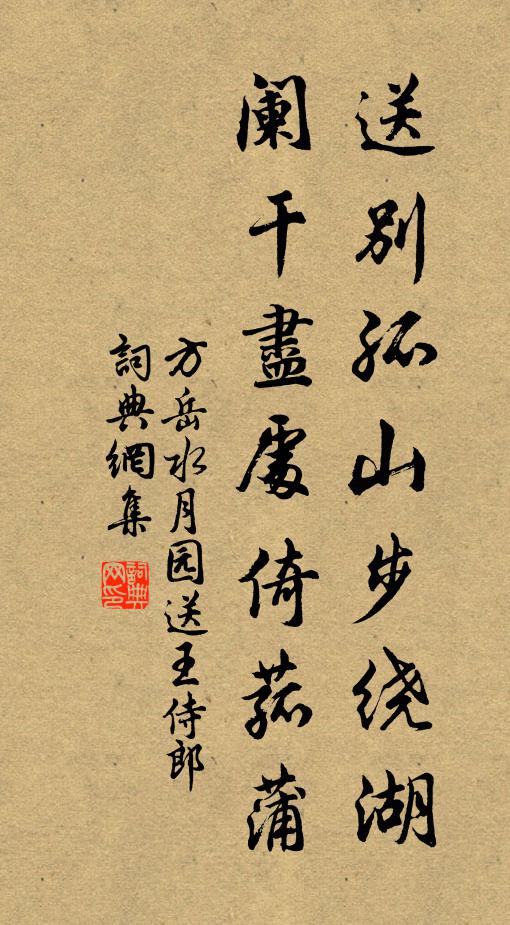 送别孤山步绕湖
阑干盡處倚菰蒲
方岳水月园送王侍郎
詞典網集
詞典网印